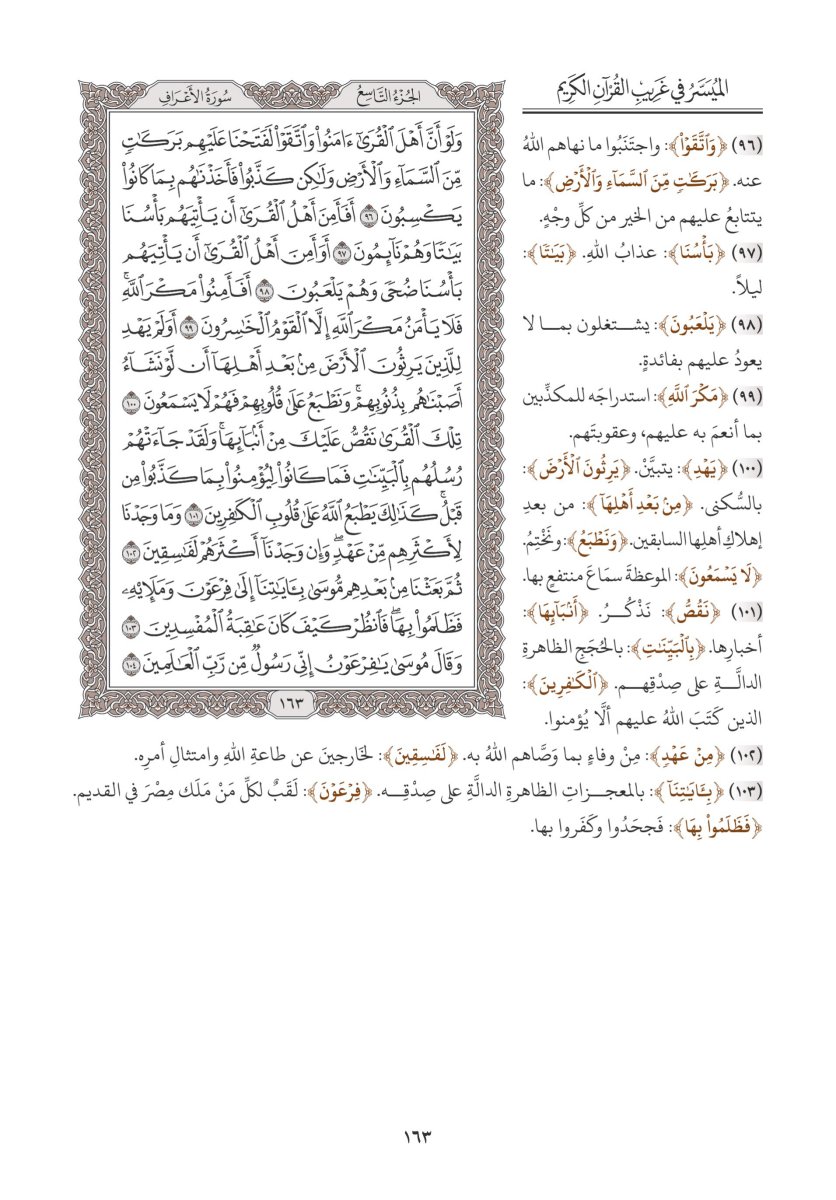 الميُسَّرُ في غَرِيبِ القُرْآنِ الكَرِيم
(٩٦) ﴿وَٱتَّقَوۡاْ﴾: واجتَنَبُوا ما نهاهم اللهُ
عنه. ﴿بَرَكَٰتٖ مِّنَ ٱلسَّمَآءِ وَٱلۡأَرۡضِ﴾: ما
يتتابعُ عليهم من الخير من كلِّ وجْهٍ.
(٩٧) ﴿بَأۡسُنَا﴾: عذابُ اللهِ. ﴿بَيَٰتٗا﴾:
ليلاً.
(٩٨) ﴿يَلۡعَبُونَ﴾: يشتغلون بما لا
يعودُ عليهم بفائدةٍ.
(٩٩) ﴿مَكۡرَ ٱللَّهِ﴾: استدراجَه للمكذِّبين
بما أنعمَ به عليهم، وعقوبتَهم.
(١٠٠) ﴿يَهۡدِ﴾: يتبيَّنْ. ﴿يَرِثُونَ ٱلۡأَرۡضَ﴾:
بالسُّكنى. ﴿مِنۢ بَعۡدِ أَهۡلِهَآ﴾: من بعدِ
إهلاكِ أهلِها السابقين. ﴿وَنَطۡبَعُ﴾: ونَخْتِمُ.
﴿لَا يَسۡمَعُونَ﴾: الموعظةَ سمَاعَ منتفعٍ بها.
(١٠١) ﴿نَقُصُّ﴾: نَذْكُرُ. ﴿أَنۢبَآئِهَا﴾:
أخبارِها. ﴿بِٱلۡبَيِّنَٰتِ﴾: بالحُجَجِ الظاهرةِ
الدالَّةِ على صِدْقِهم. ﴿ٱلۡكَٰفِرِينَ﴾:
الذين كَتَبَ اللهُ عليهم ألَّا يُؤمنوا.
(١٠٢) ﴿مِنۡ عَهۡدٖ﴾: مِنْ وفاءٍ بما وَصَّاهم اللهُ به. ﴿لَفَٰسِقِينَ﴾: لخَارجينَ عن طاعةِ اللهِ وامتثالِ أمرِه.
(١٠٣) ﴿بِـَٔايَٰتِنَآ﴾: بالمعجزاتِ الظاهرةِ الدالَّةِ على صِدْقِه. ﴿فِرۡعَوۡنَ﴾: لَقَبٌ لكلِّ مَنْ مَلَك مِصْرَ في القديم.
﴿فَظَلَمُواْ بِهَا﴾: فَجحَدُوا وكَفَروا بها.
الجُزْءُ التَّاسِعُ
سُورَةُ الأَعْرَافِ
وَلَوۡ أَنَّ أَهۡلَ ٱلۡقُرَىٰٓ ءَامَنُواْ وَٱتَّقَوۡاْ لَفَتَحۡنَا عَلَيۡهِم بَرَكَٰتٖ
مِّنَ ٱلسَّمَآءِ وَٱلۡأَرۡضِ وَلَٰكِن كَذَّبُواْ فَأَخَذۡنَٰهُم بِمَا كَانُواْ
يَكۡسِبُونَ ٩٦ أَفَأَمِنَ أَهۡلُ ٱلۡقُرَىٰٓ أَن يَأۡتِيَهُم بَأۡسُنَا
بَيَٰتٗا وَهُمۡ نَآئِمُونَ ٩٧ أَوَأَمِنَ أَهۡلُ ٱلۡقُرَىٰٓ أَن يَأۡتِيَهُم
بَأۡسُنَا ضُحٗى وَهُمۡ يَلۡعَبُونَ ٩٨ أَفَأَمِنُواْ مَكۡرَ ٱللَّهِۚ
فَلَا يَأۡمَنُ مَكۡرَ ٱللَّهِ إِلَّا ٱلۡقَوۡمُ ٱلۡخَٰسِرُونَ ٩٩ أَوَلَمۡ يَهۡدِ
لِلَّذِينَ يَرِثُونَ ٱلۡأَرۡضَ مِنۢ بَعۡدِ أَهۡلِهَآ أَن لَّوۡ نَشَآءُ
أَصَبۡنَٰهُم بِذُنُوبِهِمۡۚ وَنَطۡبَعُ عَلَىٰ قُلُوبِهِمۡ فَهُمۡ لَا يَسۡمَعُونَ ١٠٠
تِلۡكَ ٱلۡقُرَىٰ نَقُصُّ عَلَيۡكَ مِنۡ أَنۢبَآئِهَاۚ وَلَقَدۡ جَآءَتۡهُمۡ
رُسُلُهُم بِٱلۡبَيِّنَٰتِ فَمَا كَانُواْ لِيُؤۡمِنُواْ بِمَا كَذَّبُواْ مِن
قَبۡلُۚ كَذَٰلِكَ يَطۡبَعُ ٱللَّهُ عَلَىٰ قُلُوبِ ٱلۡكَٰفِرِينَ ١٠١ وَمَا وَجَدۡنَا
لِأَكۡثَرِهِم مِّنۡ عَهۡدٖۖ وَإِن وَجَدۡنَآ أَكۡثَرَهُمۡ لَفَٰسِقِينَ ١٠٢
ثُمَّ بَعَثۡنَا مِنۢ بَعۡدِهِم مُّوسَىٰ بِـَٔايَٰتِنَآ إِلَىٰ فِرۡعَوۡنَ وَمَلَإِيْهِۦ
فَظَلَمُواْ بِهَاۖ فَٱنظُرۡ كَيۡفَ كَانَ عَٰقِبَةُ ٱلۡمُفۡسِدِينَ ١٠٣
وَقَالَ مُوسَىٰ يَٰفِرۡعَوۡنُ إِنِّي رَسُولٞ مِّن رَّبِّ ٱلۡعَٰلَمِينَ ١٠٤
١٦٣
١٦٣